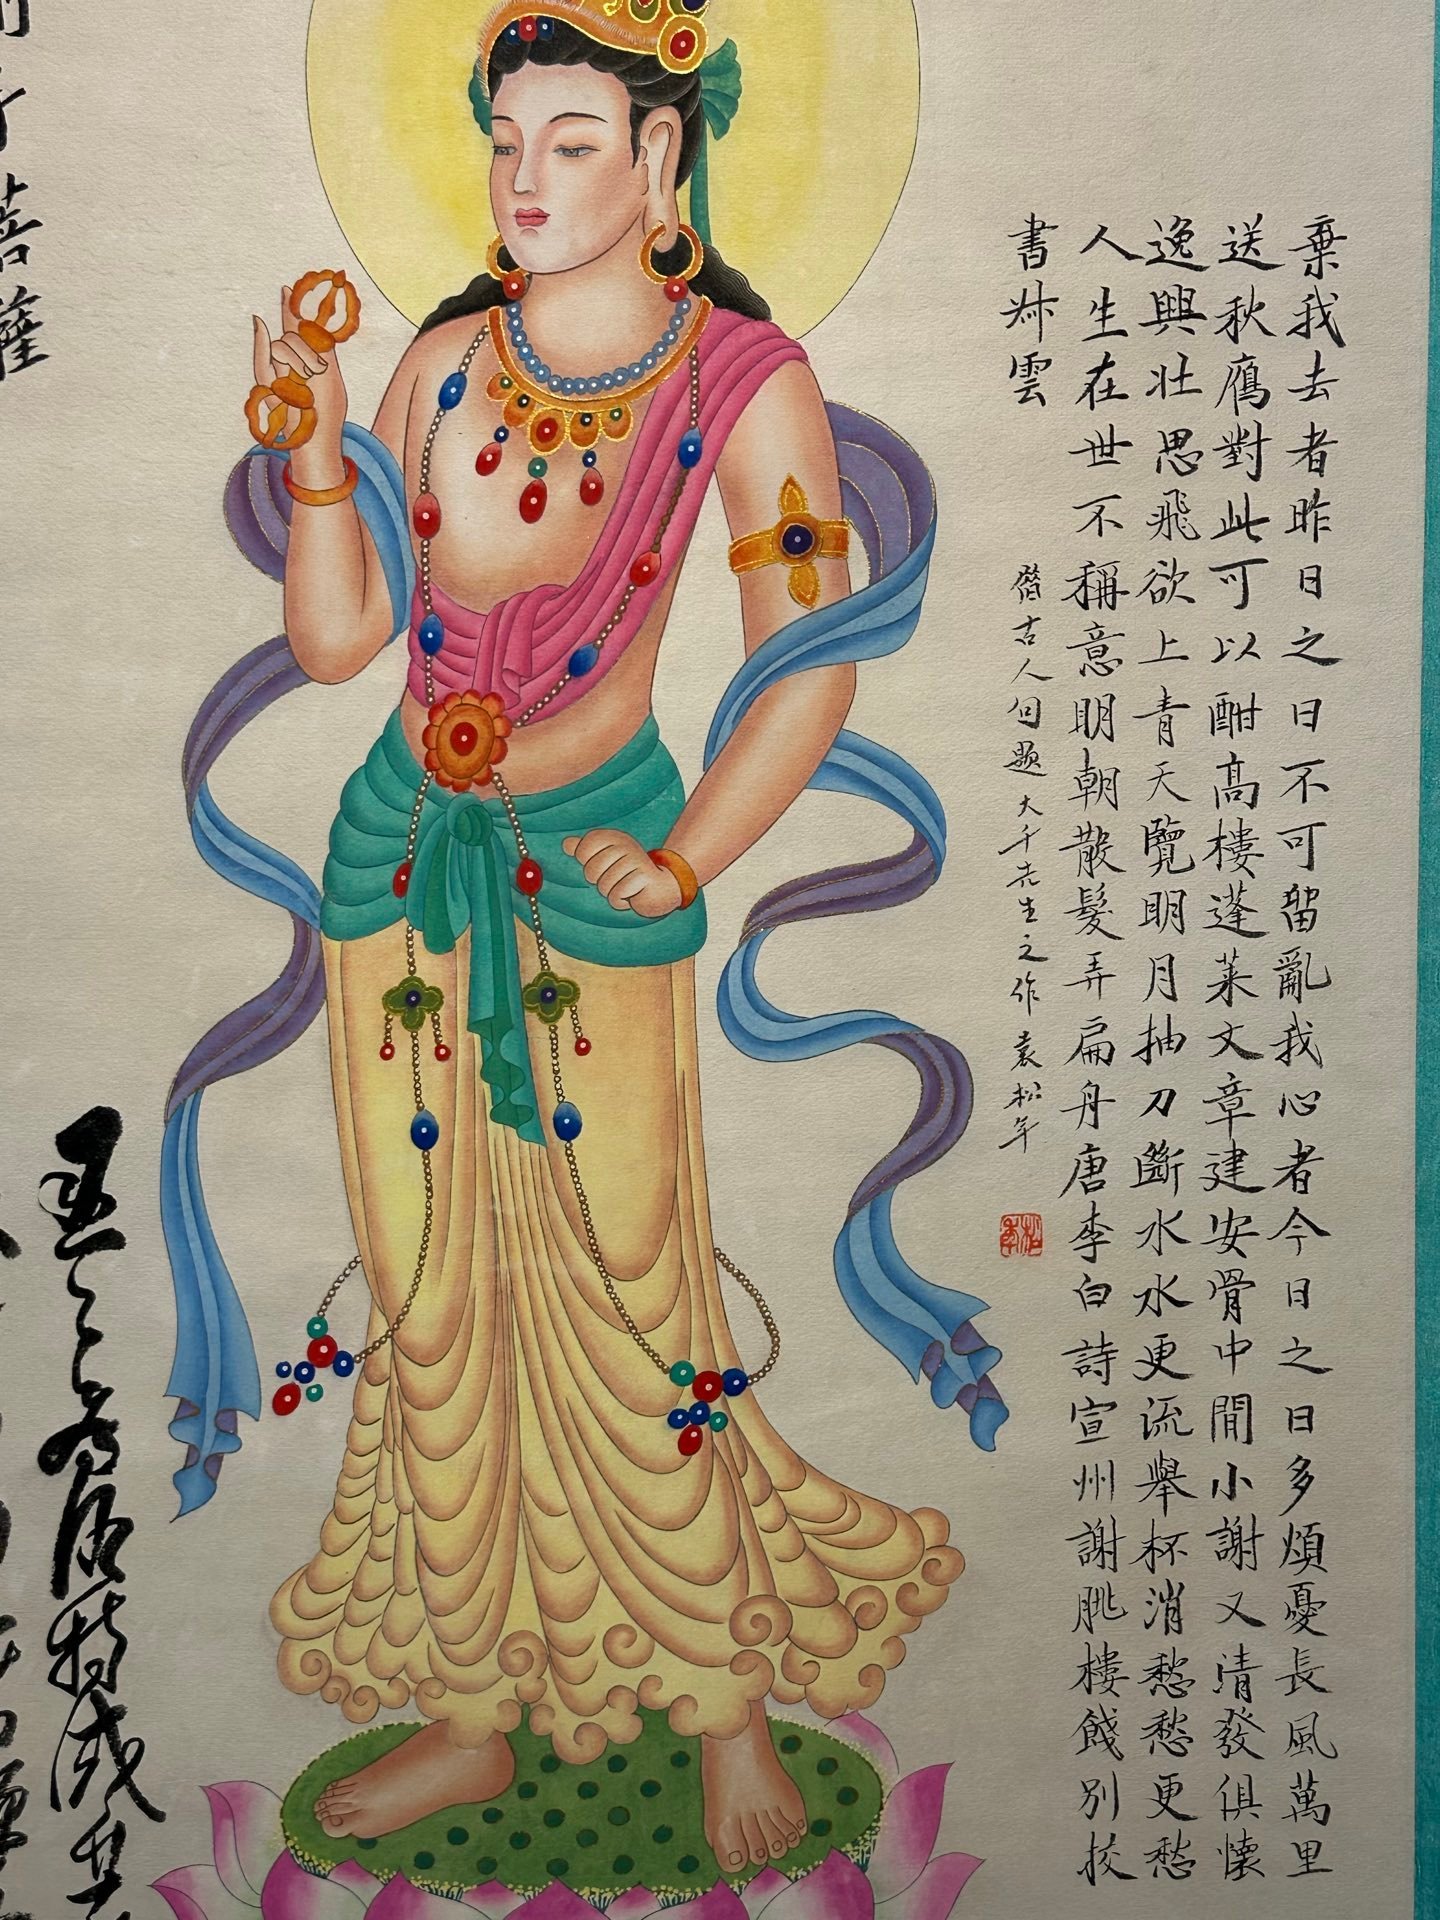 棄我去者昨日之日不可留亂我心者今日之日多煩憂長風萬里
送秋鴈對此可以酣高樓蓬萊文章建安骨中間小謝又清發俱懷
逸興壯思飛欲上青天覽明月抽刀斷水水更流舉杯消愁愁更愁
人生在世不稱意明朝散髮弄扁舟唐李白詩宣州謝朓樓餞別校
書叔雲
僭古人句題大千先生之作袁松年
菩薩